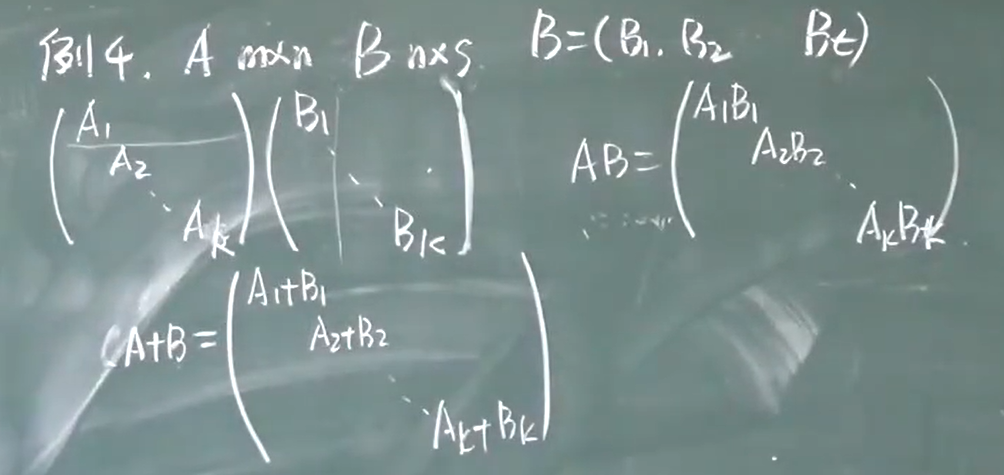 例4. A m×n B n×s B=(B₁. B₂ Bt)
(A₁ A₂ ⋱ Ak)(B₁ ⋱ Bk) AB=(A₁B₁ A₂B₂ ⋱ AkBk)
A+B=(A₁+B₁ A₂+B₂ ⋱ Ak+Bk)